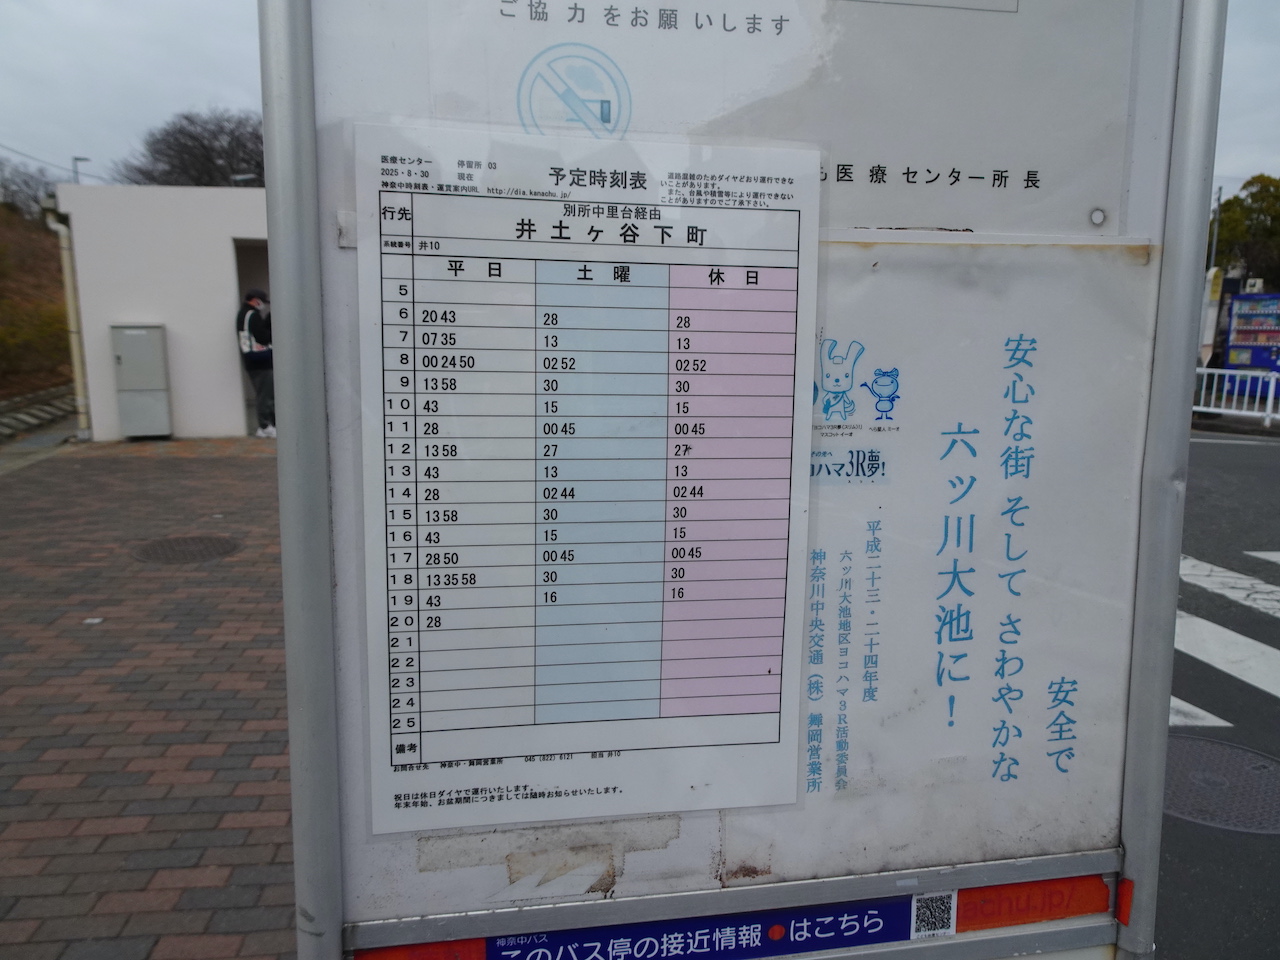 ご協力をお願いします
も医療センター所長
医療センター 停留所 03
2025・8・30 現在
神奈中時刻表・運営案内URL http://dia.kanachu.jp/
予定時刻表
道路混雑のためダイヤどおり運行できな
いことがあります。
また、台風や積雪等により運行できない
ことがありますのでご了承下さい。
行先 別所中里台経由
井土ヶ谷下町
系統番号 井10
平日 土曜 休日
5
6 20 43 28 28
7 07 35 13 13
8 00 24 50 02 52 02 52
9 13 58 30 30
10 43 15 15
11 28 00 45 00 45
12 13 58 27 27
13 43 13 13
14 28 02 44 02 44
15 13 58 30 30
16 43 15 15
17 28 50 00 45 00 45
18 13 35 58 30 30
19 43 16 16
20 28
21
22
23
24
25
備考
お問合せ先 神奈中・舞岡営業所 045 (822) 6121 担当 井10
祝日は休日ダイヤで運行いたします。
年末年始、お盆期間につきましては随時お知らせいたします。
安全で
安心な街 そして さわやかな
六ッ川大池に!
マスコット イーオ
へら星人 ミーオ
ハマ3R夢!
平成二十三・二十四年度
六ッ川大池地区ヨコハマ3R活動委員会
神奈川中央交通(株) 舞岡営業所
神奈中バス
このバス停の接近情報●はこちら
achu.jp/